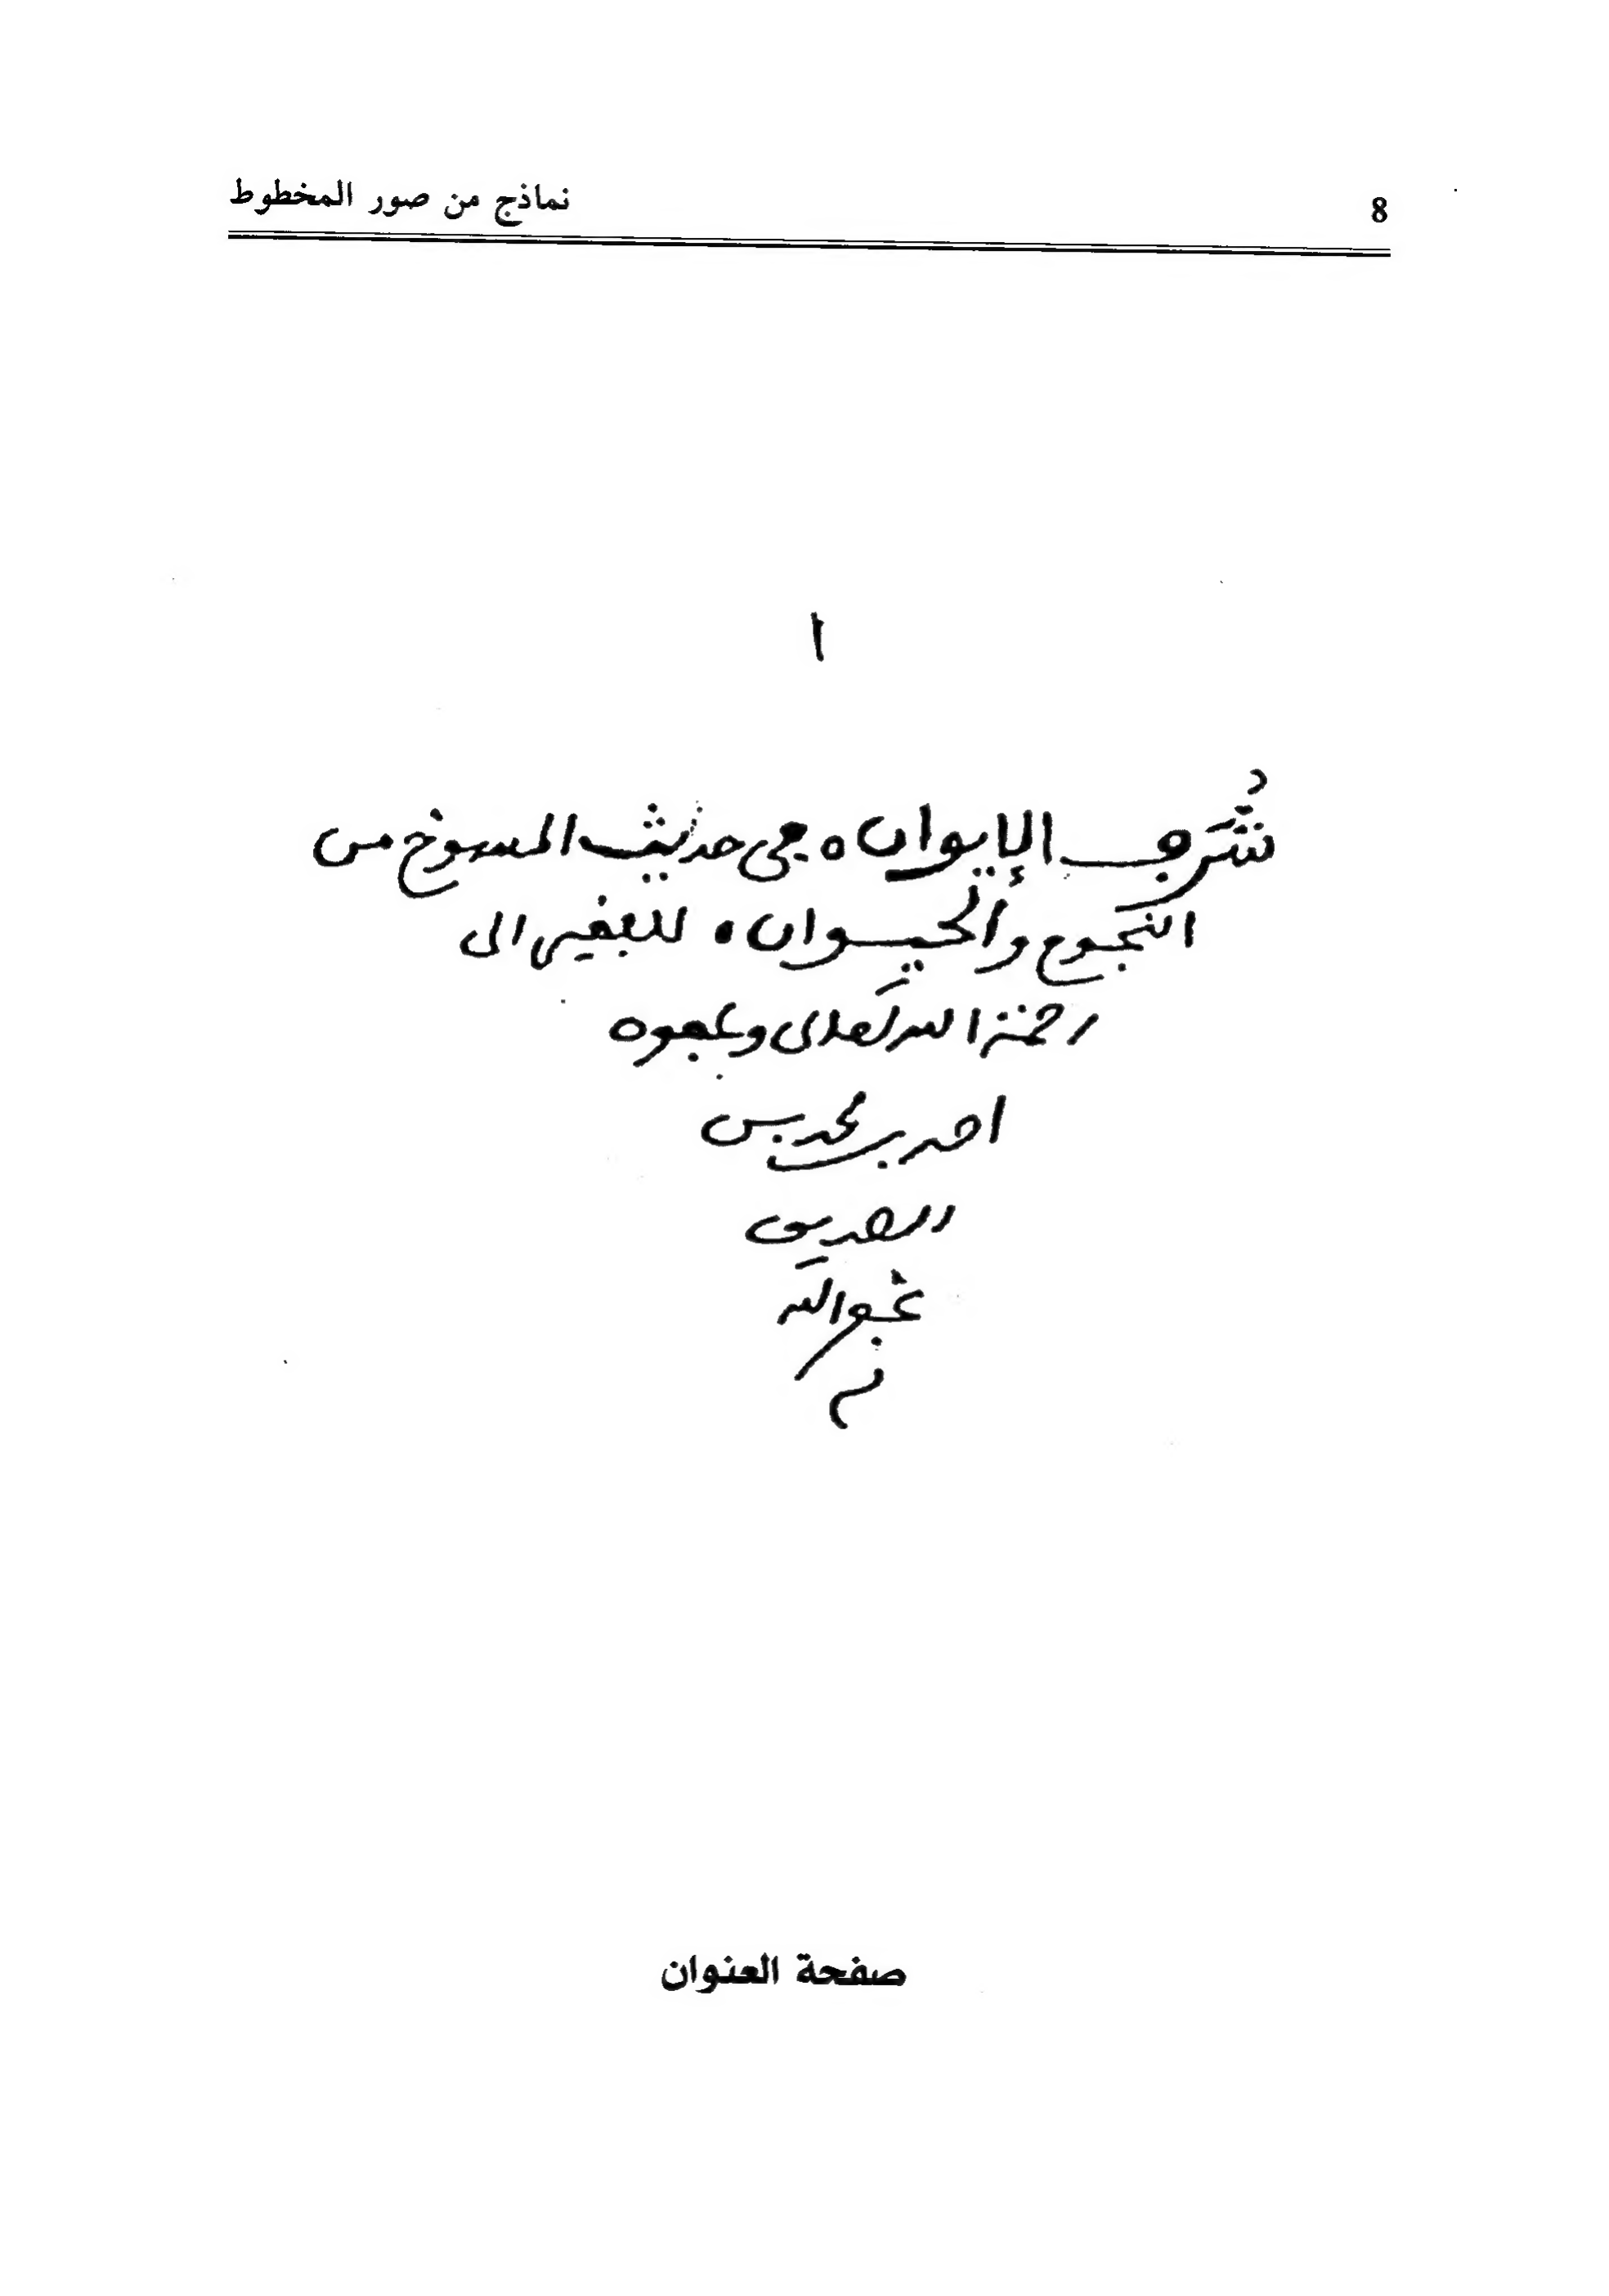 8
نماذج من صور المخطوط
ا
شُرَف الإيوان في حديث المسوخ من
النجوم والحيوان للفقير الى
رحمة الله تعالى وعفوه
احمد بن محمد بن
الصديق
غفر الله
صفحة العنوان